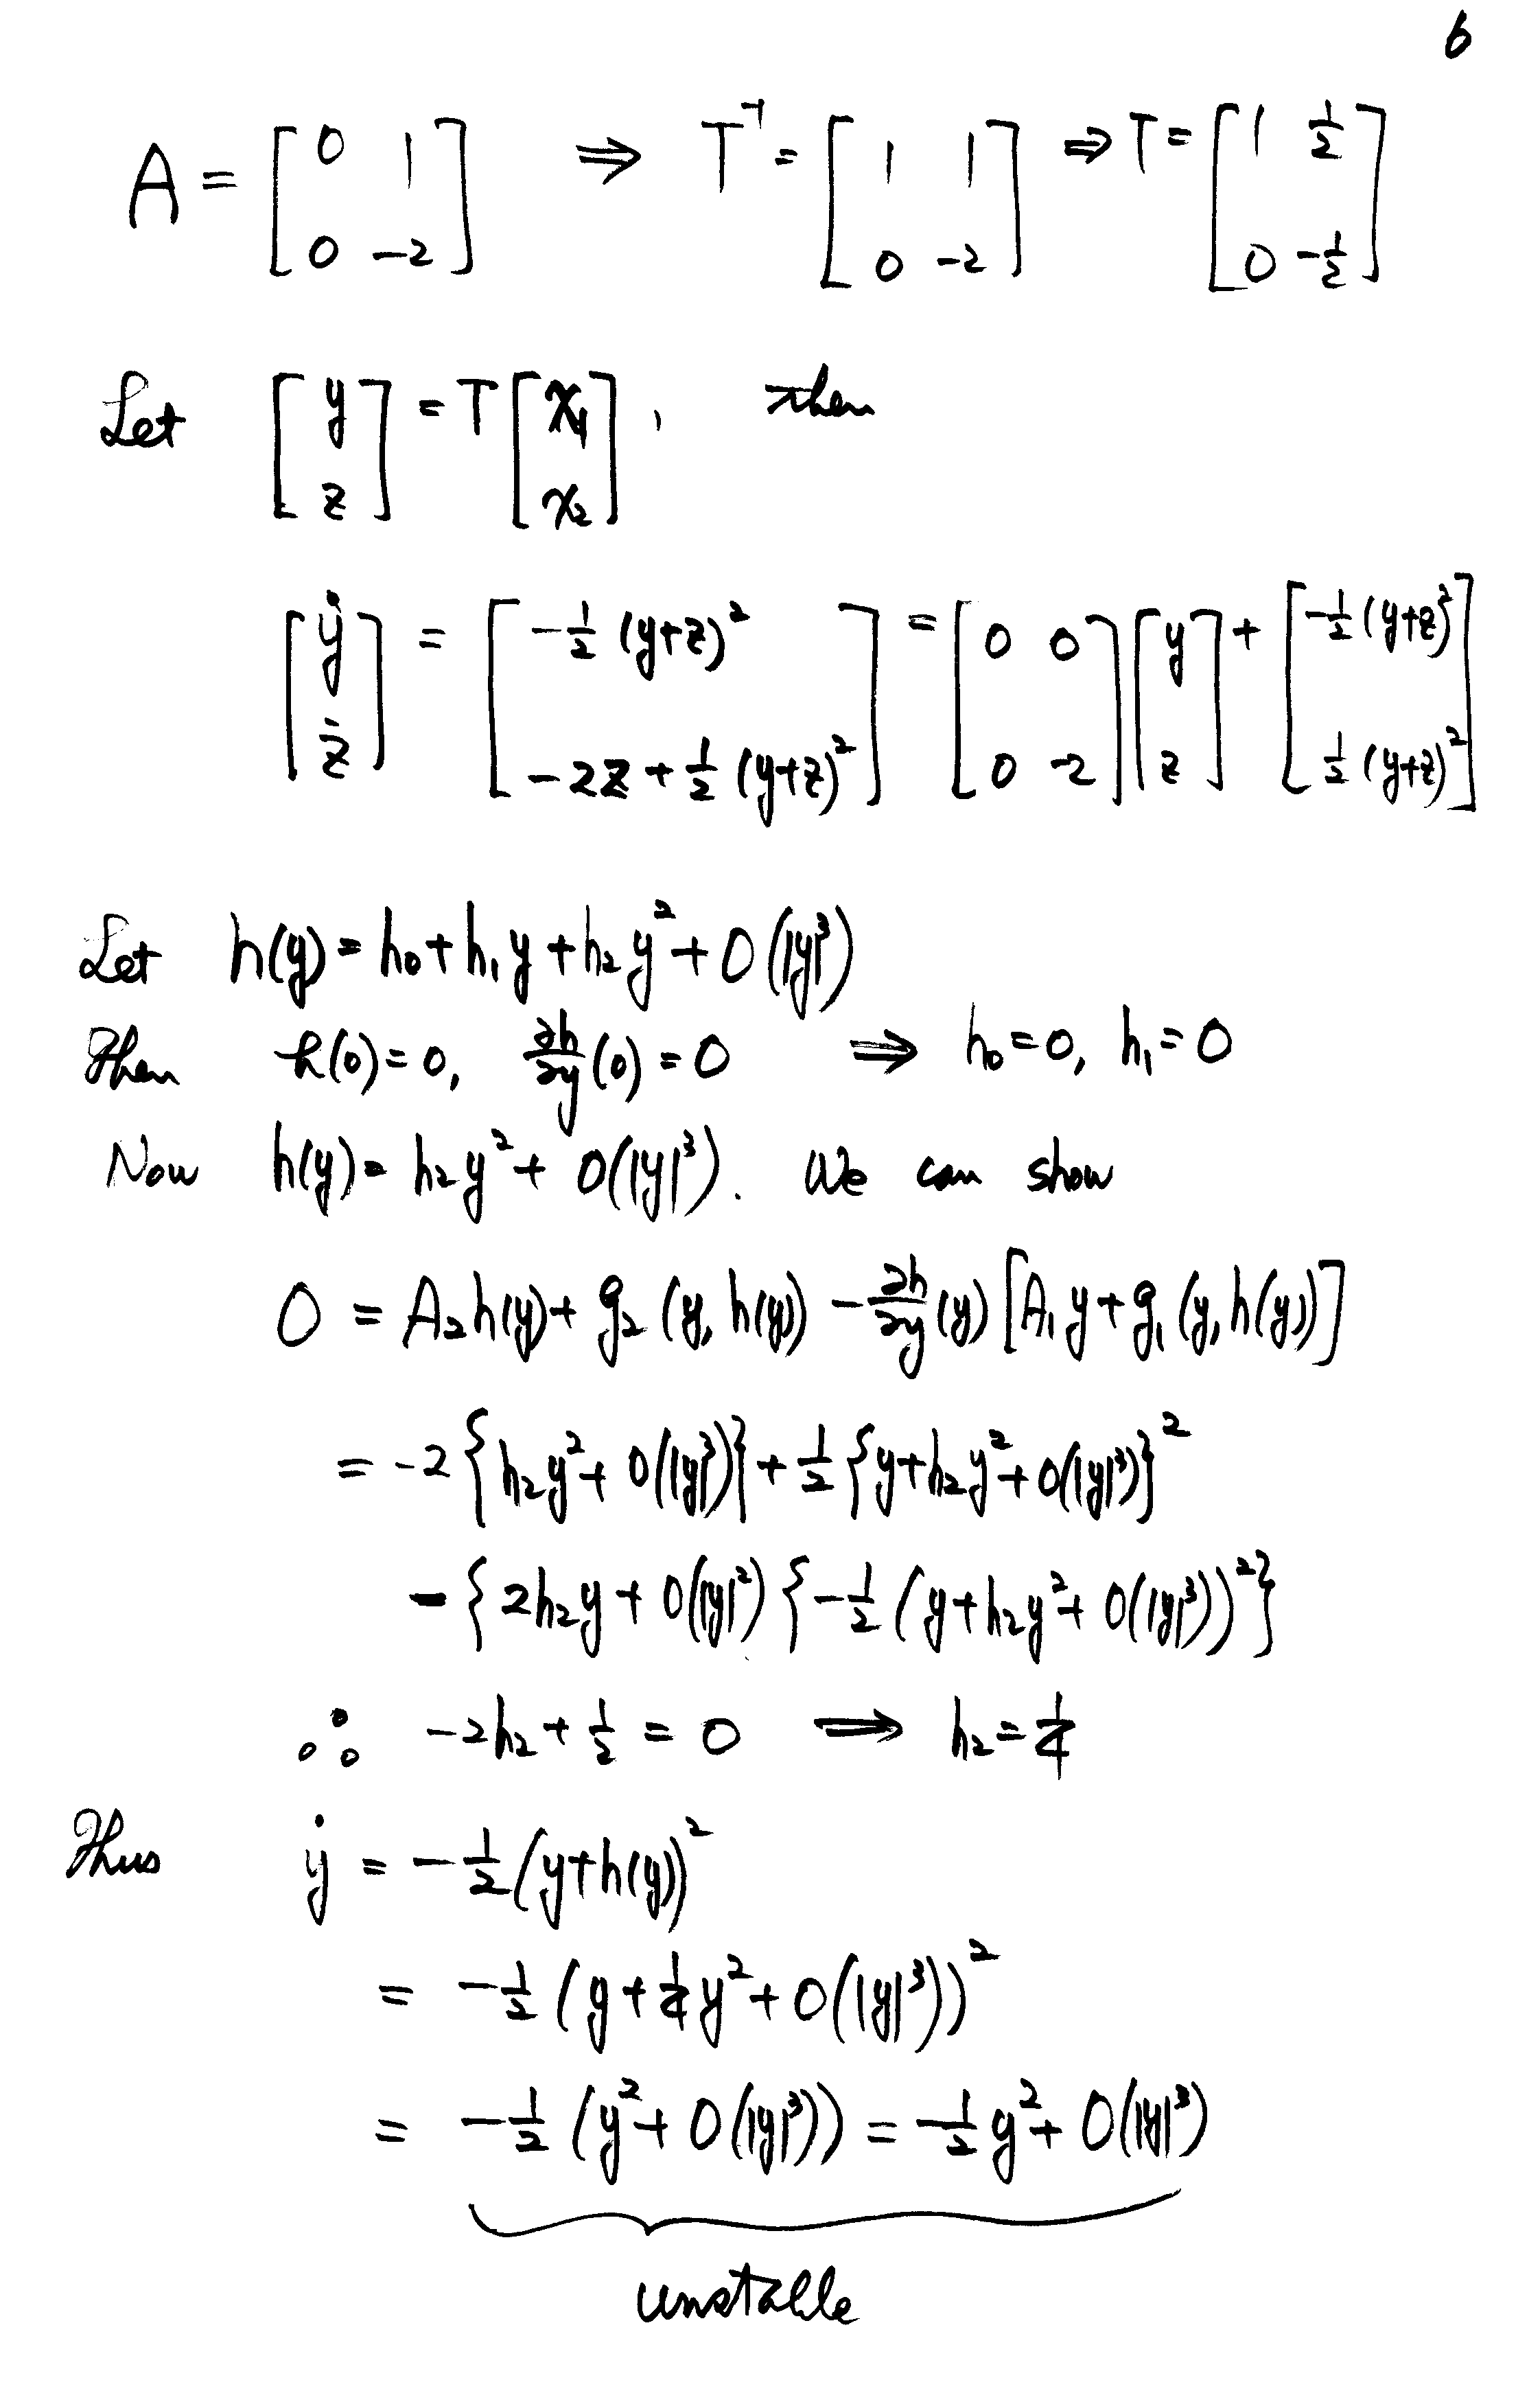 6
A = [0 1; 0 -2] ⇒ T⁻¹ = [1 1; 0 -2] ⇒ T = [1 1/2; 0 -1/2]
Let [y; z] = T [x₁; x₂], then
[ẏ; ż] = [-1/2 (y+z)²; -2z + 1/2 (y+z)²] = [0 0; 0 -2] [y; z] + [-1/2 (y+z)²; 1/2 (y+z)²]
Let h(y) = h₀ + h₁y + h₂y² + O(|y|³)
Then h(0) = 0, ∂h/∂y (0) = 0 ⇒ h₀ = 0, h₁ = 0
Now h(y) = h₂y² + O(|y|³). We can show
0 = A₂h(y) + g₂(y, h(y)) - ∂h/∂y (y) [A₁y + g₁(y, h(y))]
= -2 {h₂y² + O(|y|³)} + 1/2 {y + h₂y² + O(|y|³)}²
- {2h₂y + O(|y|²) {-1/2 (y + h₂y² + O(|y|³))²}
∴ -2h₂ + 1/2 = 0 ⟹ h₂ = 1/4
Thus ẏ = -1/2 (y + h(y))²
= -1/2 (y + 1/4 y² + O(|y|³))²
= -1/2 (y² + O(|y|³)) = -1/2 y² + O(|y|³)
unstable